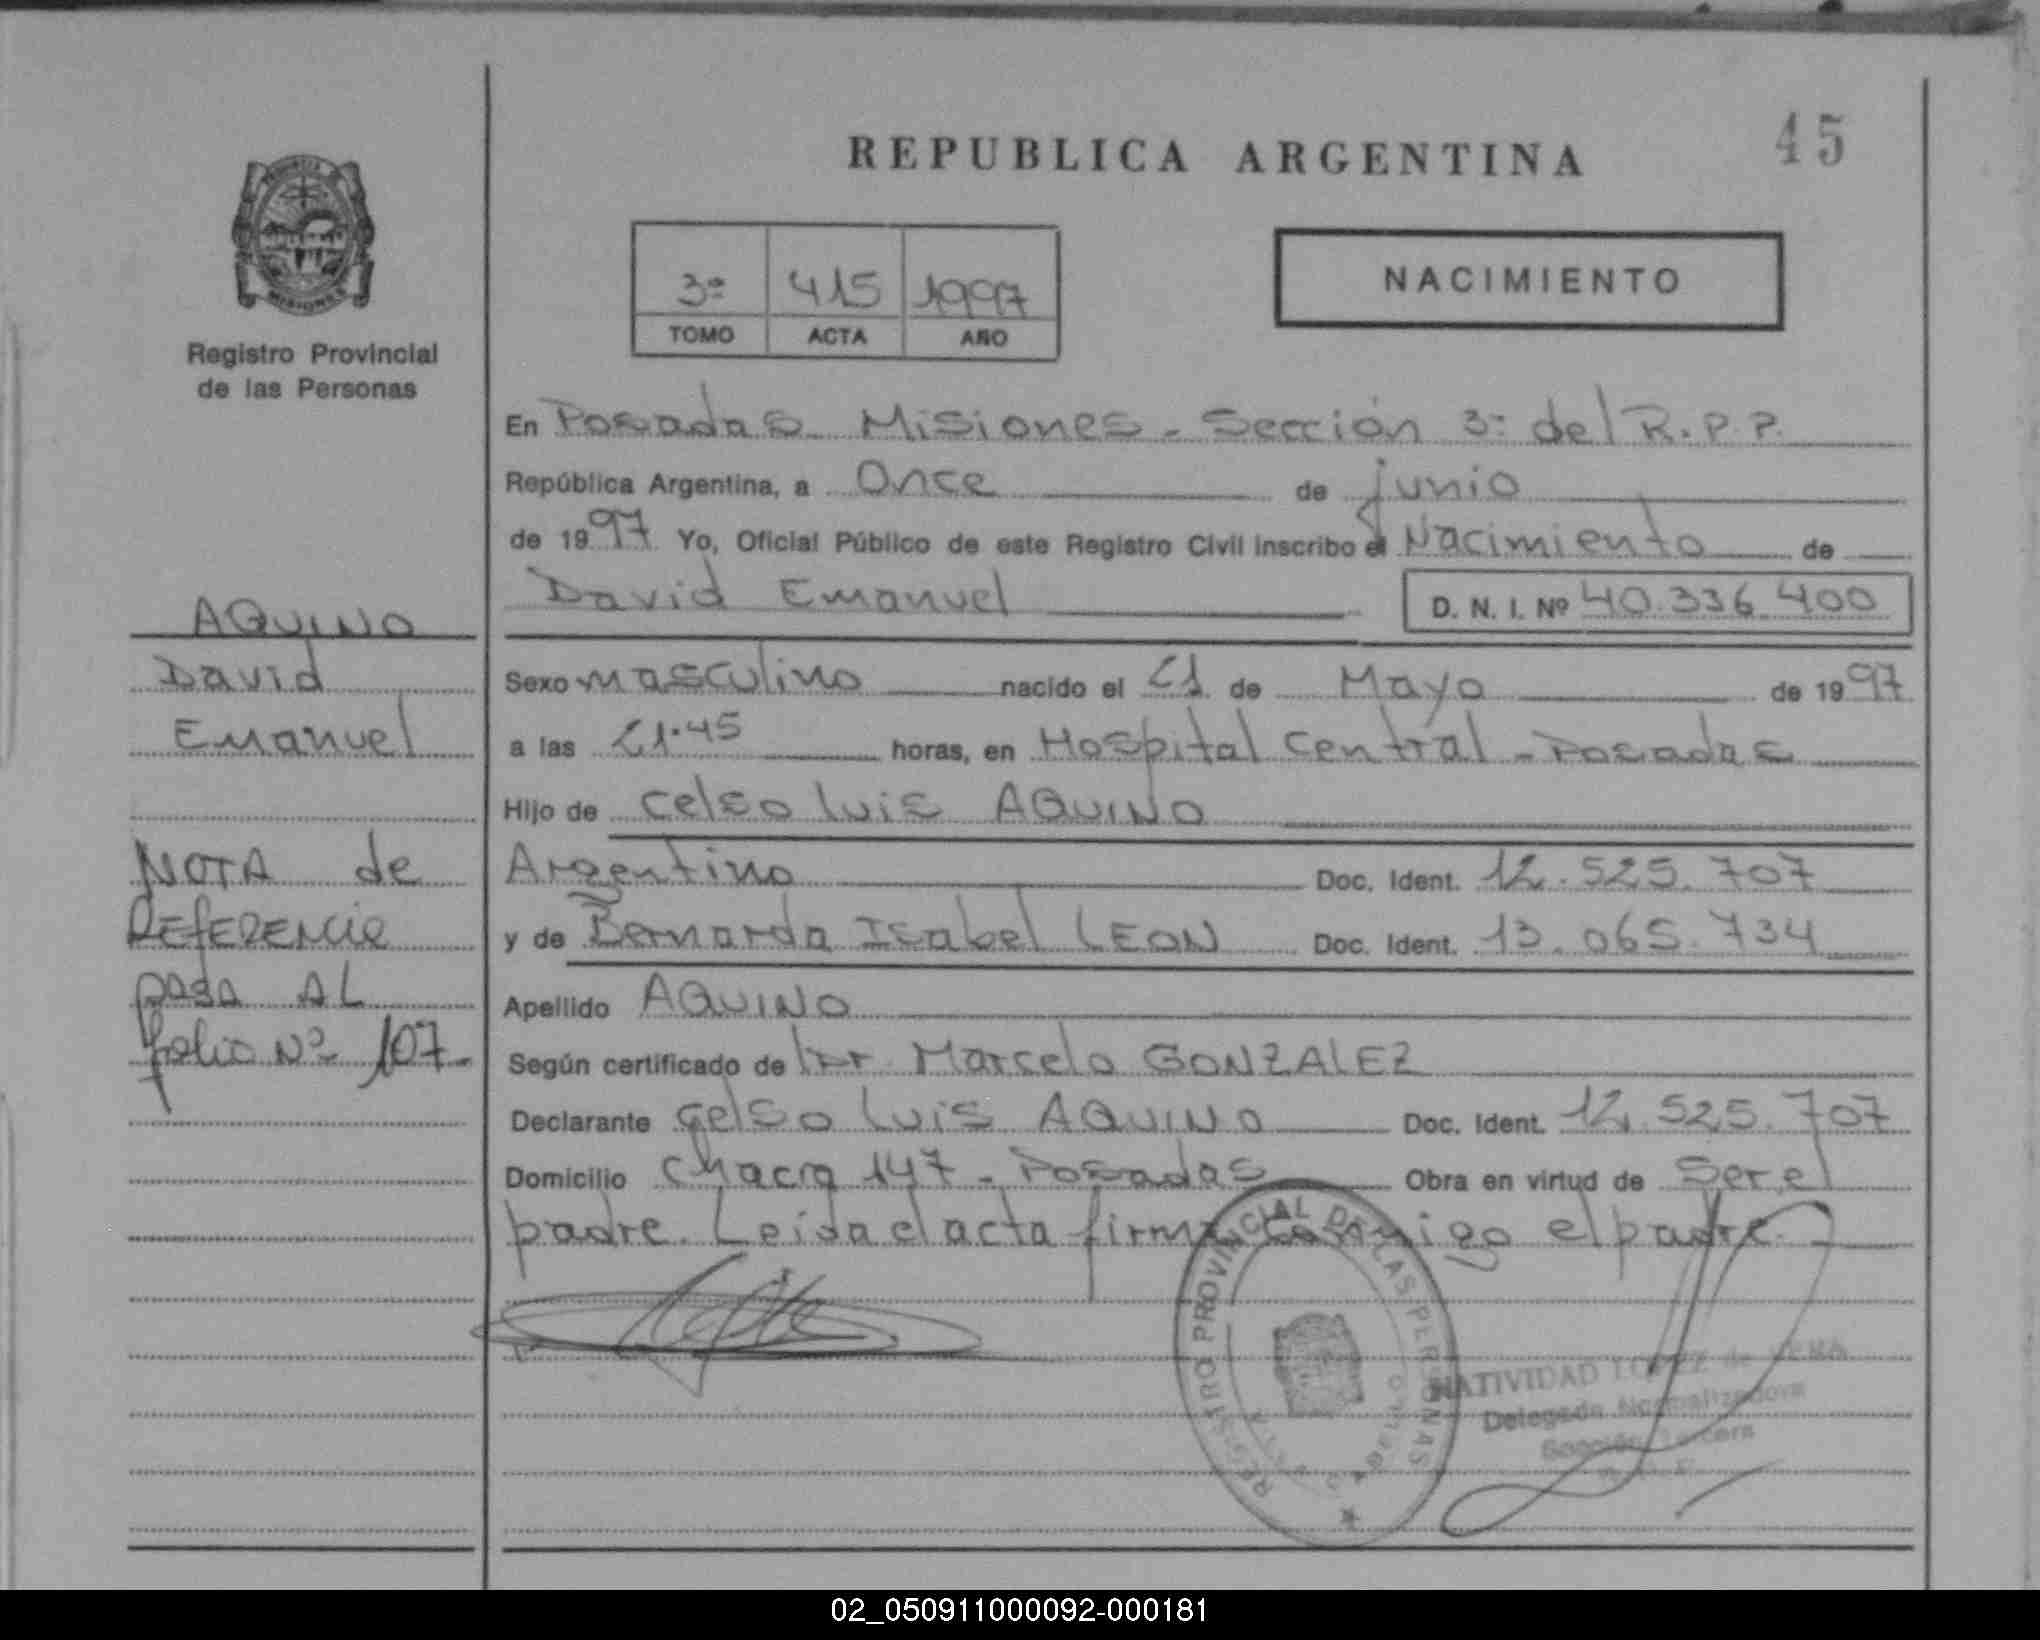 REPUBLICA ARGENTINA
45
MISIONES
Registro Provincial
de las Personas
3º 415 1997
TOMO ACTA AÑO
NACIMIENTO
En Posadas Misiones - Sección 3º del R.P.P.
República Argentina, a Once de junio
de 1997 Yo, Oficial Público de este Registro Civil inscribo el Nacimiento de
David Emanuel D. N. I. Nº 40.336.400
AQUINO
David
Emanuel
NOTA de
REFERENCIA
pasa AL
folio Nº 107-
Sexo masculino nacido el 21 de Mayo de 1997
a las 21.45 horas, en Hospital Central - Posadas
Hijo de Celso Luis AQUINO
Argentino Doc. Ident. 12.525.707
y de Bernarda Isabel LEON Doc. Ident. 13.065.734
Apellido AQUINO
Según certificado de Dr. Marcelo GONZALEZ
Declarante Celso Luis AQUINO Doc. Ident. 12.525.707
Domicilio Chacra 147 - Posadas Obra en virtud de Ser el
padre. Leida el acta firma conmigo el padre.
REGISTRO PROVINCIAL DE LAS PERSONAS
NATIVIDAD LOPEZ de VERA
Delegada Normalizadora
Sección Tercera
02_050911000092-000181